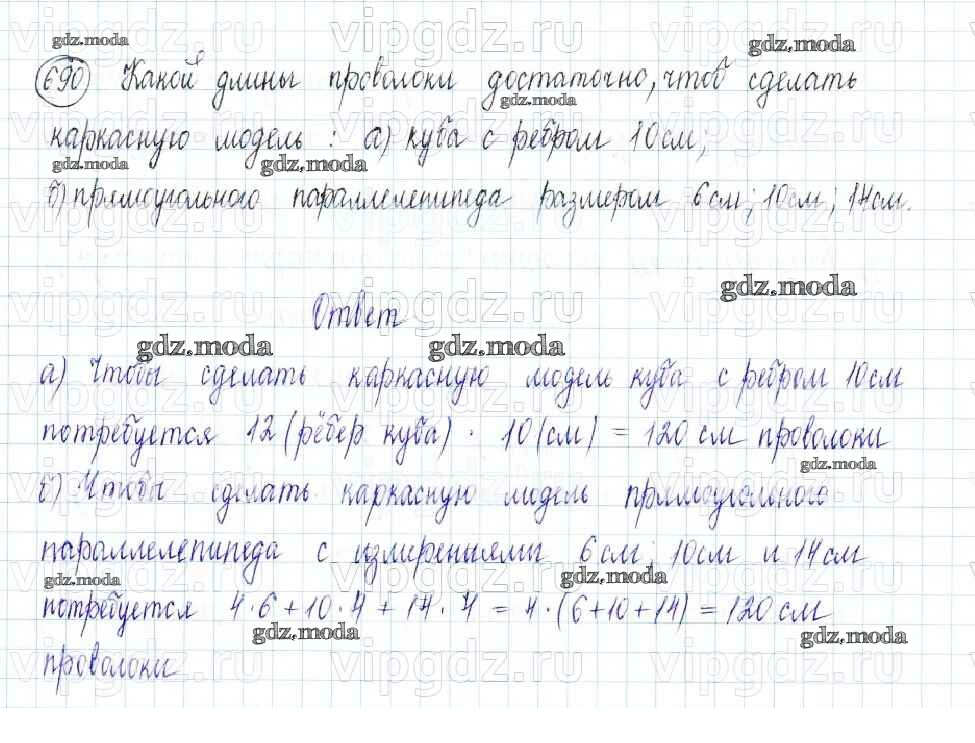 gdz.moda
gdz.moda
690 Какой длины проволоки достаточно, чтоб сделать
gdz.moda
каркасную модель : а) куба с ребром 10см;
gdz.moda gdz.moda
б) прямоугольного параллелепипеда размером 6см; 10см; 14см.
gdz.moda
Ответ
gdz.moda gdz.moda
а) Чтобы сделать каркасную модель куба с ребром 10см
потребуется 12 (рёбер куба) · 10(см) = 120 см проволоки
gdz.moda
б) Чтобы сделать каркасную модель прямоугольного
параллелепипеда с измерениями 6см; 10см и 14см
gdz.moda gdz.moda
потребуется 4·6+10·4+14·4 = 4·(6+10+14) = 120 см
gdz.moda gdz.moda
проволоки
vipgdz.ru